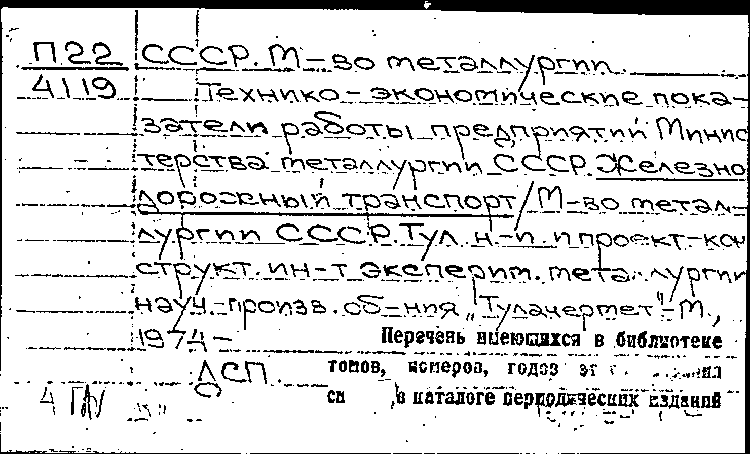 П22 СССР. М-во металлургии.
4119 Технико-экономические пока-
затели работы предприятий Минис
терства металлургии СССР. Железно
дорожный транспорт / М-во метал-
лургии СССР. Тул. н-и. и проект-кон
структ. ин-т эксперим. металлургии
науч.-произв. об-ния „Тулачермет"-М.,
1974-
Перечень имеющихся в библиотеке
ДСП. томов, номеров, годов
см в каталоге периодических изданий